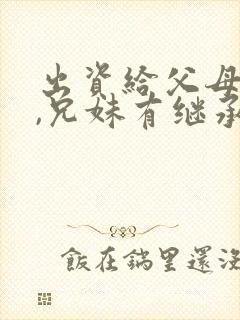 出资给父母
,兄妹有继承
飯在鍋里還沒